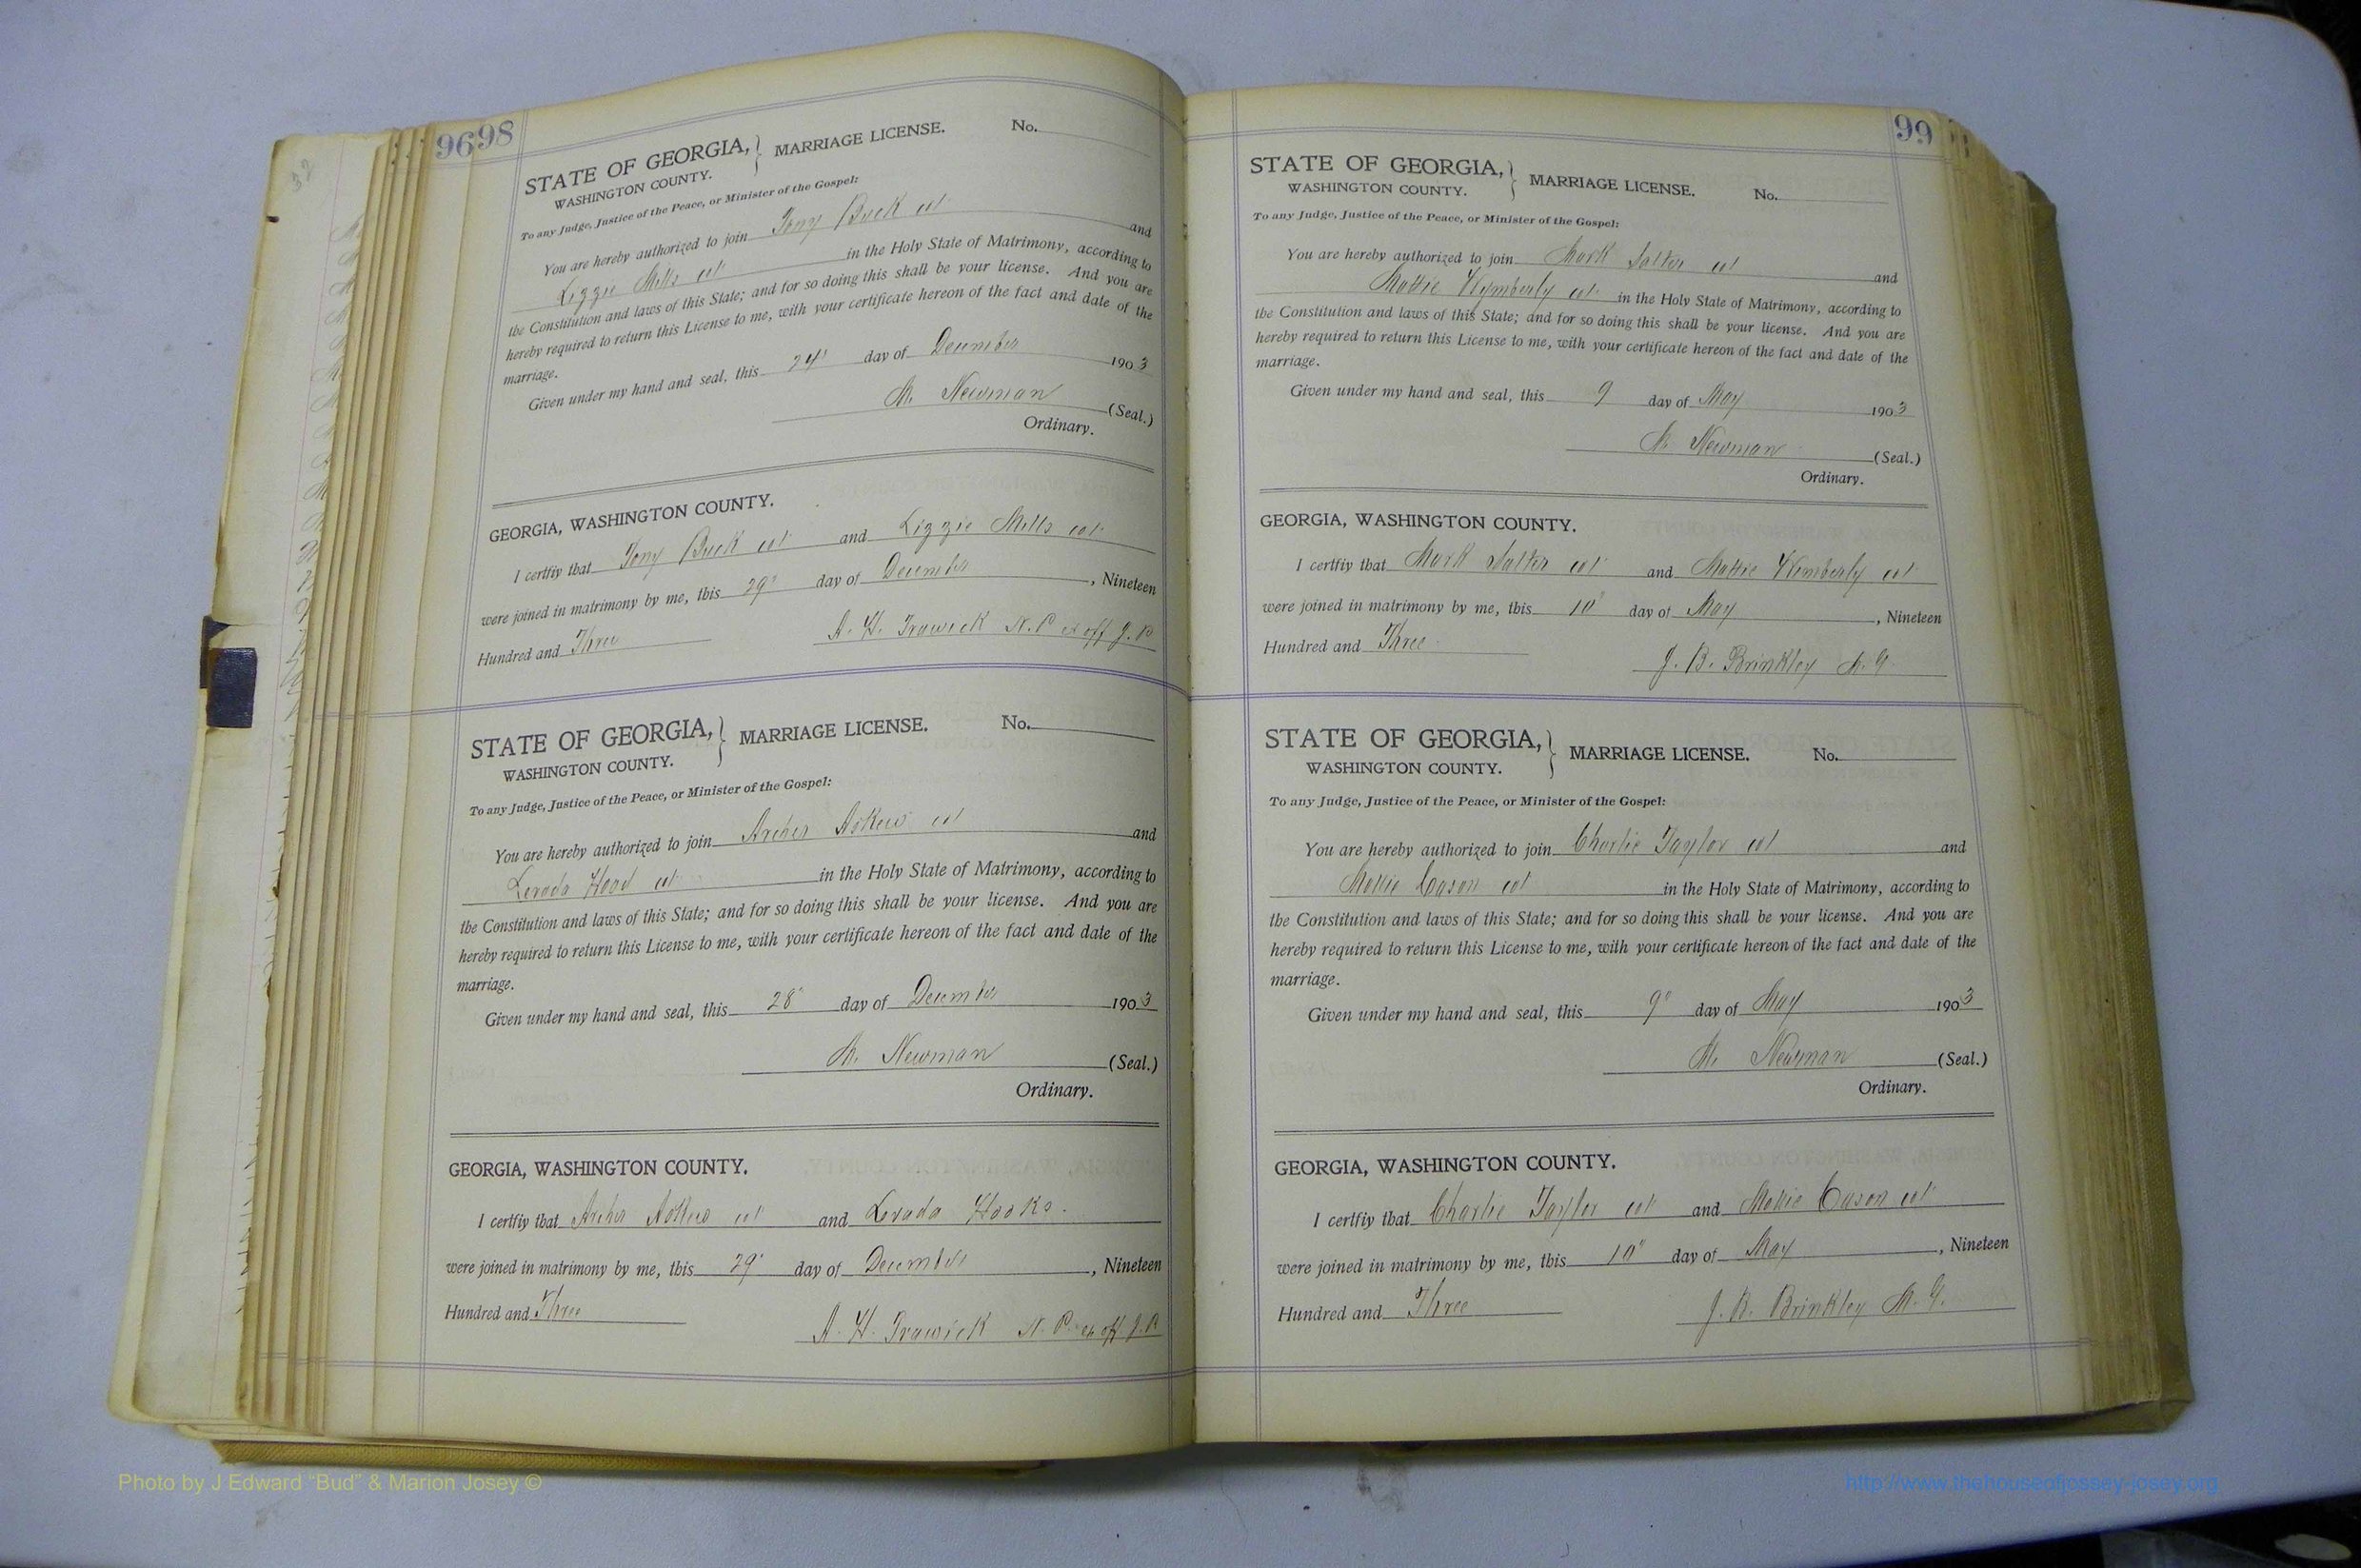 96 98
STATE OF GEORGIA, } MARRIAGE LICENSE. No.
WASHINGTON COUNTY.
To any Judge, Justice of the Peace, or Minister of the Gospel:
You are hereby authorized to join Tony Buck col and
Lizzie Mills col in the Holy State of Matrimony, according to
the Constitution and laws of this State; and for so doing this shall be your license. And you are
hereby required to return this License to me, with your certificate hereon of the fact and date of the
marriage.
Given under my hand and seal, this 24" day of December 1903
M. Newman (Seal.)
Ordinary.
GEORGIA, WASHINGTON COUNTY.
I certfiy that Tony Buck col and Lizzie Mills col
were joined in matrimony by me, this 29" day of December, Nineteen
Hundred and Three A. H. Trawick N. P. ex off J. P.
STATE OF GEORGIA, } MARRIAGE LICENSE. No.
WASHINGTON COUNTY.
To any Judge, Justice of the Peace, or Minister of the Gospel:
You are hereby authorized to join Archer Askew col and
Levada Hood col in the Holy State of Matrimony, according to
the Constitution and laws of this State; and for so doing this shall be your license. And you are
hereby required to return this License to me, with your certificate hereon of the fact and date of the
marriage.
Given under my hand and seal, this 28" day of December 1903
M. Newman (Seal.)
Ordinary.
GEORGIA, WASHINGTON COUNTY.
I certfiy that Archer Askew col and Levada Hooks.
were joined in matrimony by me, this 29" day of December, Nineteen
Hundred and Three A. H. Trawick N. P. ex off J. P.
99
STATE OF GEORGIA, } MARRIAGE LICENSE. No.
WASHINGTON COUNTY.
To any Judge, Justice of the Peace, or Minister of the Gospel:
You are hereby authorized to join Mark Salter col and
Mattie Wymberly col in the Holy State of Matrimony, according to
the Constitution and laws of this State; and for so doing this shall be your license. And you are
hereby required to return this License to me, with your certificate hereon of the fact and date of the
marriage.
Given under my hand and seal, this 9 day of May 1903
M. Newman (Seal.)
Ordinary.
GEORGIA, WASHINGTON COUNTY.
I certfiy that Mark Salter col and Mattie Wimberly col
were joined in matrimony by me, this 10" day of May, Nineteen
Hundred and Three J. B. Brinkley M. G.
STATE OF GEORGIA, } MARRIAGE LICENSE. No.
WASHINGTON COUNTY.
To any Judge, Justice of the Peace, or Minister of the Gospel:
You are hereby authorized to join Charlie Taylor col and
Mollie Cason col in the Holy State of Matrimony, according to
the Constitution and laws of this State; and for so doing this shall be your license. And you are
hereby required to return this License to me, with your certificate hereon of the fact and date of the
marriage.
Given under my hand and seal, this 9" day of May 1903
M. Newman (Seal.)
Ordinary.
GEORGIA, WASHINGTON COUNTY.
I certfiy that Charlie Taylor col and Mollie Cason col
were joined in matrimony by me, this 10" day of May, Nineteen
Hundred and Three J. B. Brinkley M. G.
Photo by J Edward "Bud" & Marion Josey ©
http://www.thehouseofjossey-josey.org